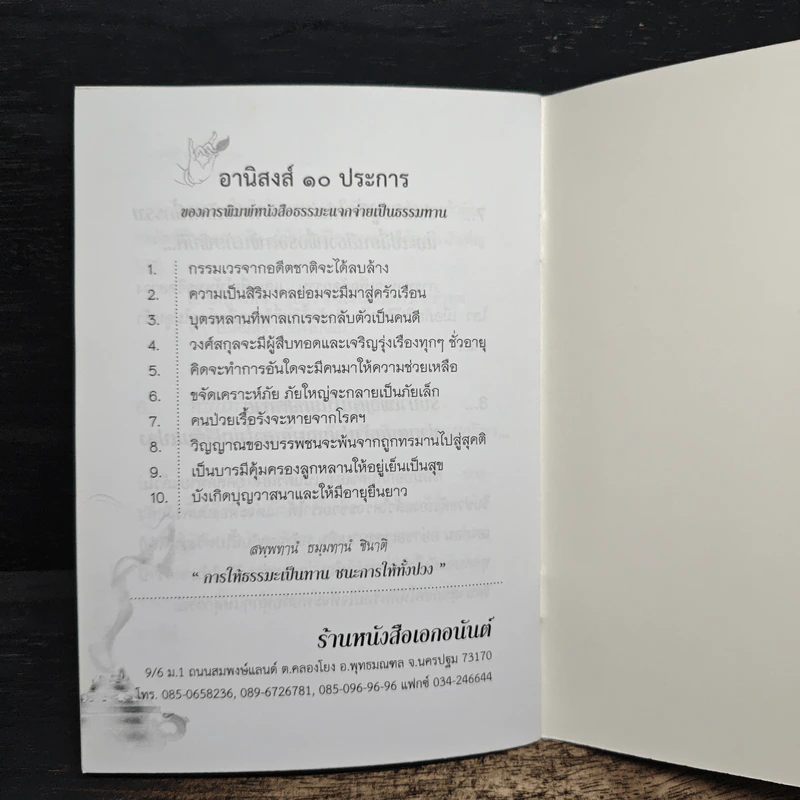 อานิสงส์ ๑๐ ประการ
ของการพิมพ์หนังสือธรรมะแจกจ่ายเป็นธรรมทาน
1. กรรมเวรจากอดีตชาติจะได้ลบล้าง
2. ความเป็นสิริมงคลย่อมจะมีมาสู่ครัวเรือน
3. บุตรหลานที่พาลเกเรจะกลับตัวเป็นคนดี
4. วงศ์สกุลจะมีผู้สืบทอดและเจริญรุ่งเรืองทุกๆ ชั่วอายุ
5. คิดจะทำการอันใดจะมีคนมาให้ความช่วยเหลือ
6. ขจัดเคราะห์ภัย ภัยใหญ่จะกลายเป็นภัยเล็ก
7. คนป่วยเรื้อรังจะหายจากโรคฯ
8. วิญญาณของบรรพชนจะพ้นจากถูกทรมานไปสู่สุคติ
9. เป็นบารมีคุ้มครองลูกหลานให้อยู่เย็นเป็นสุข
10. บังเกิดบุญวาสนาและให้มีอายุยืนยาว
สพฺพทานํ ธมฺมทานํ ชินาติ
“ การให้ธรรมะเป็นทาน ชนะการให้ทั้งปวง ”
ร้านหนังสือเอกอนันต์
9/6 ม.1 ถนนสมพงษ์แลนด์ ต.คลองโยง อ.พุทธมณฑล จ.นครปฐม 73170
โทร. 085-0658236, 089-6726781, 085-096-96-96 แฟกซ์ 034-246644